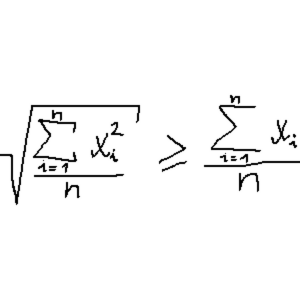 $\sqrt{\frac{\sum_{i=1}^{n} x_i^2}{n}} \geq \frac{\sum_{i=1}^{n} x_i}{n}$